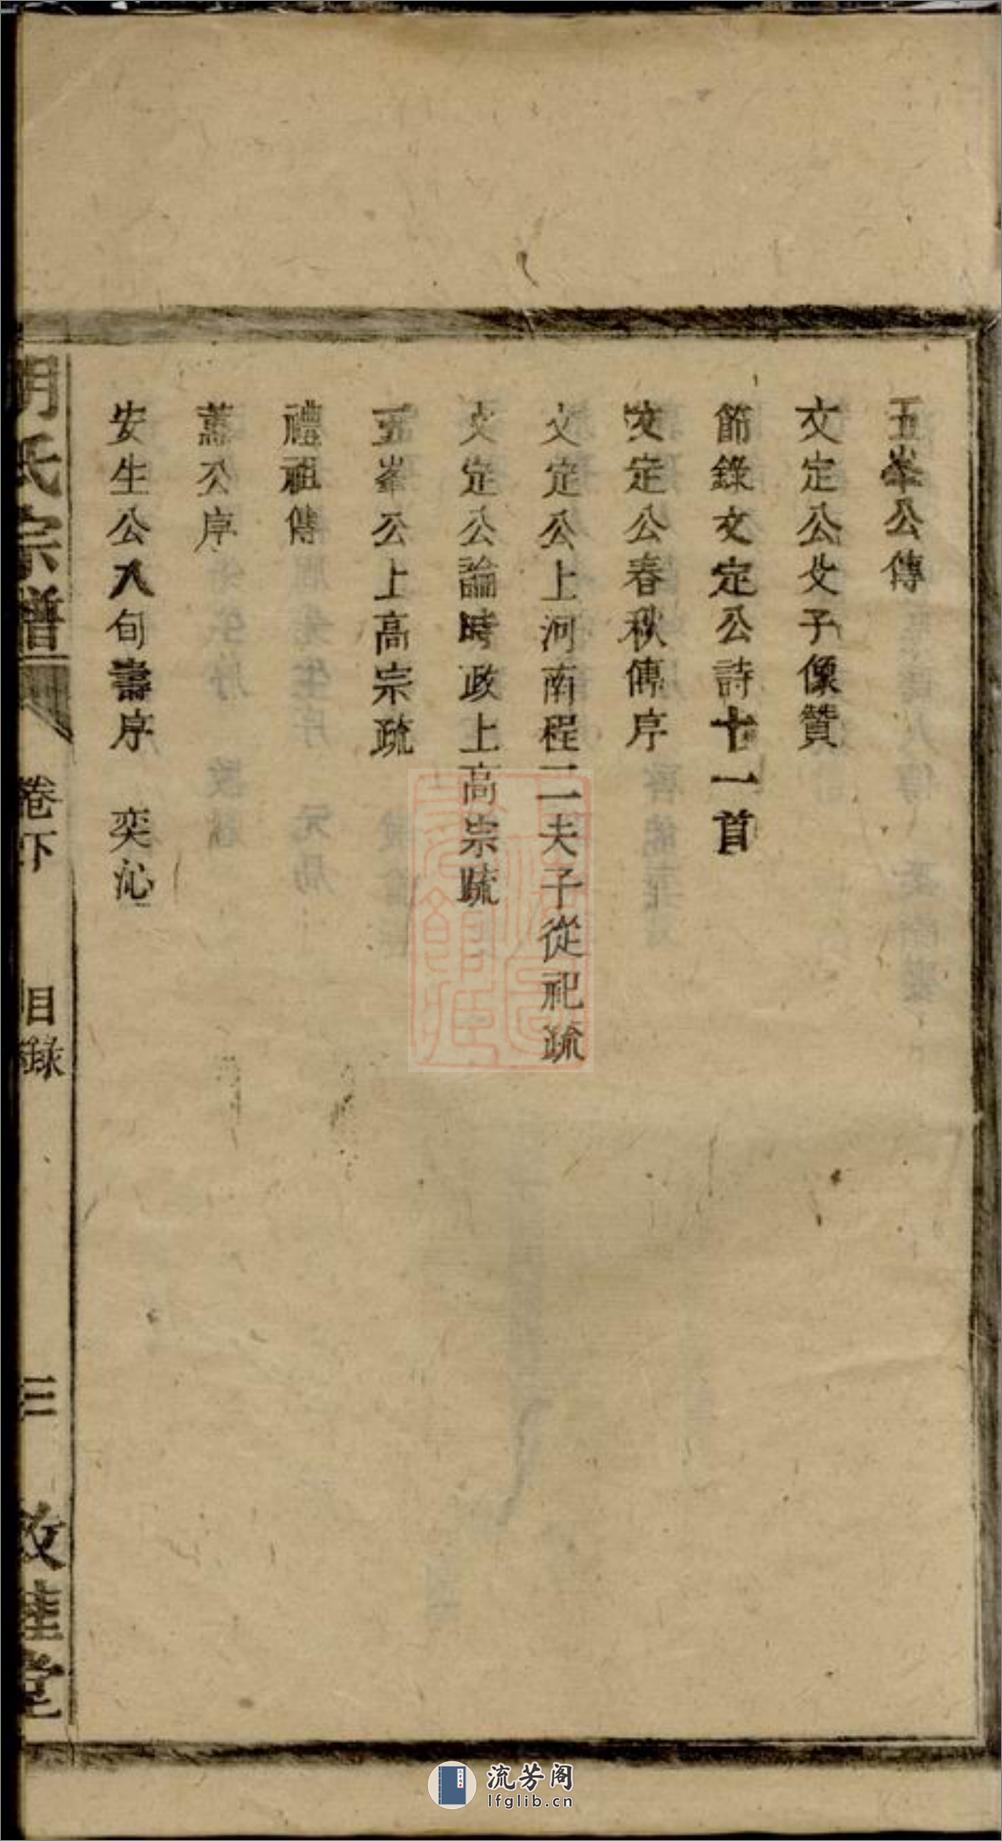 五峯公傳
文定公父子像贊
節錄文定公詩十一首
文定公春秋傳序
文定公上河南程二夫子從祀疏
文定公論時政上高宗疏
五峯公上高宗疏
禮祖傳
公序
安生公八旬壽序 奕沁
胡氏宗譜 卷下 目錄 三 堂
流芳阁
lfglib.cn